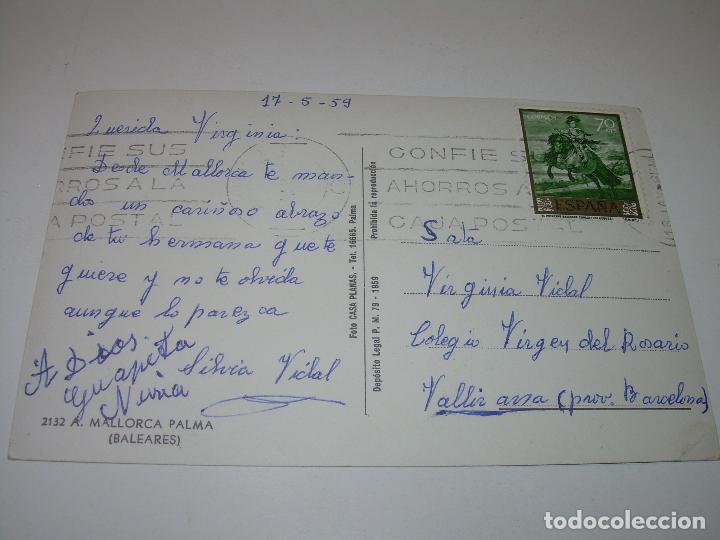 17-5-59
Querida Virginia:
Desde Mallorca te man-
do un cariñoso abrazo
de tu hermana que te
quiere y no te olvida
aunque lo parezca
Silvia Vidal
Adios
guapeta
Nuria
2132 A. MALLORCA PALMA
(BALEARES)
Foto CASA PLANAS. - Tel. 16665. Palma
Prohibida la reproducción
Depósito Legal P. M. 79 - 1959
CONFIE SUS
AHORROS A LA
CAJA POSTAL
CONFIE SUS
AHORROS A
CAJA POSTAL
70
ESPAÑA
Srta
Virginia Vidal
Colegio Virgen del Rosario
Vallirana (prov. Barcelona)
todocoleccion.net